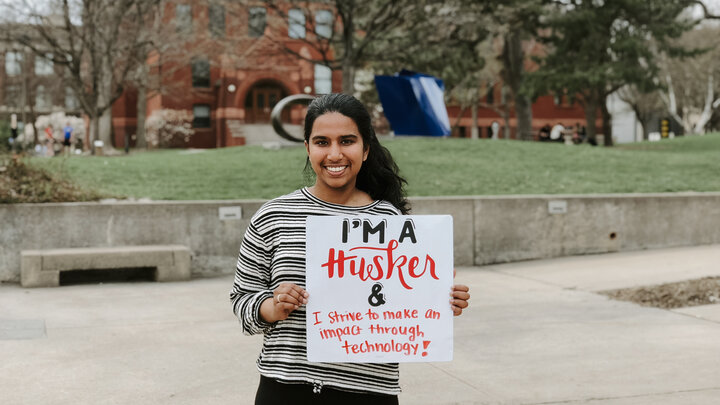 I'M A
Husker
&
I strive to make an
impact through
technology!